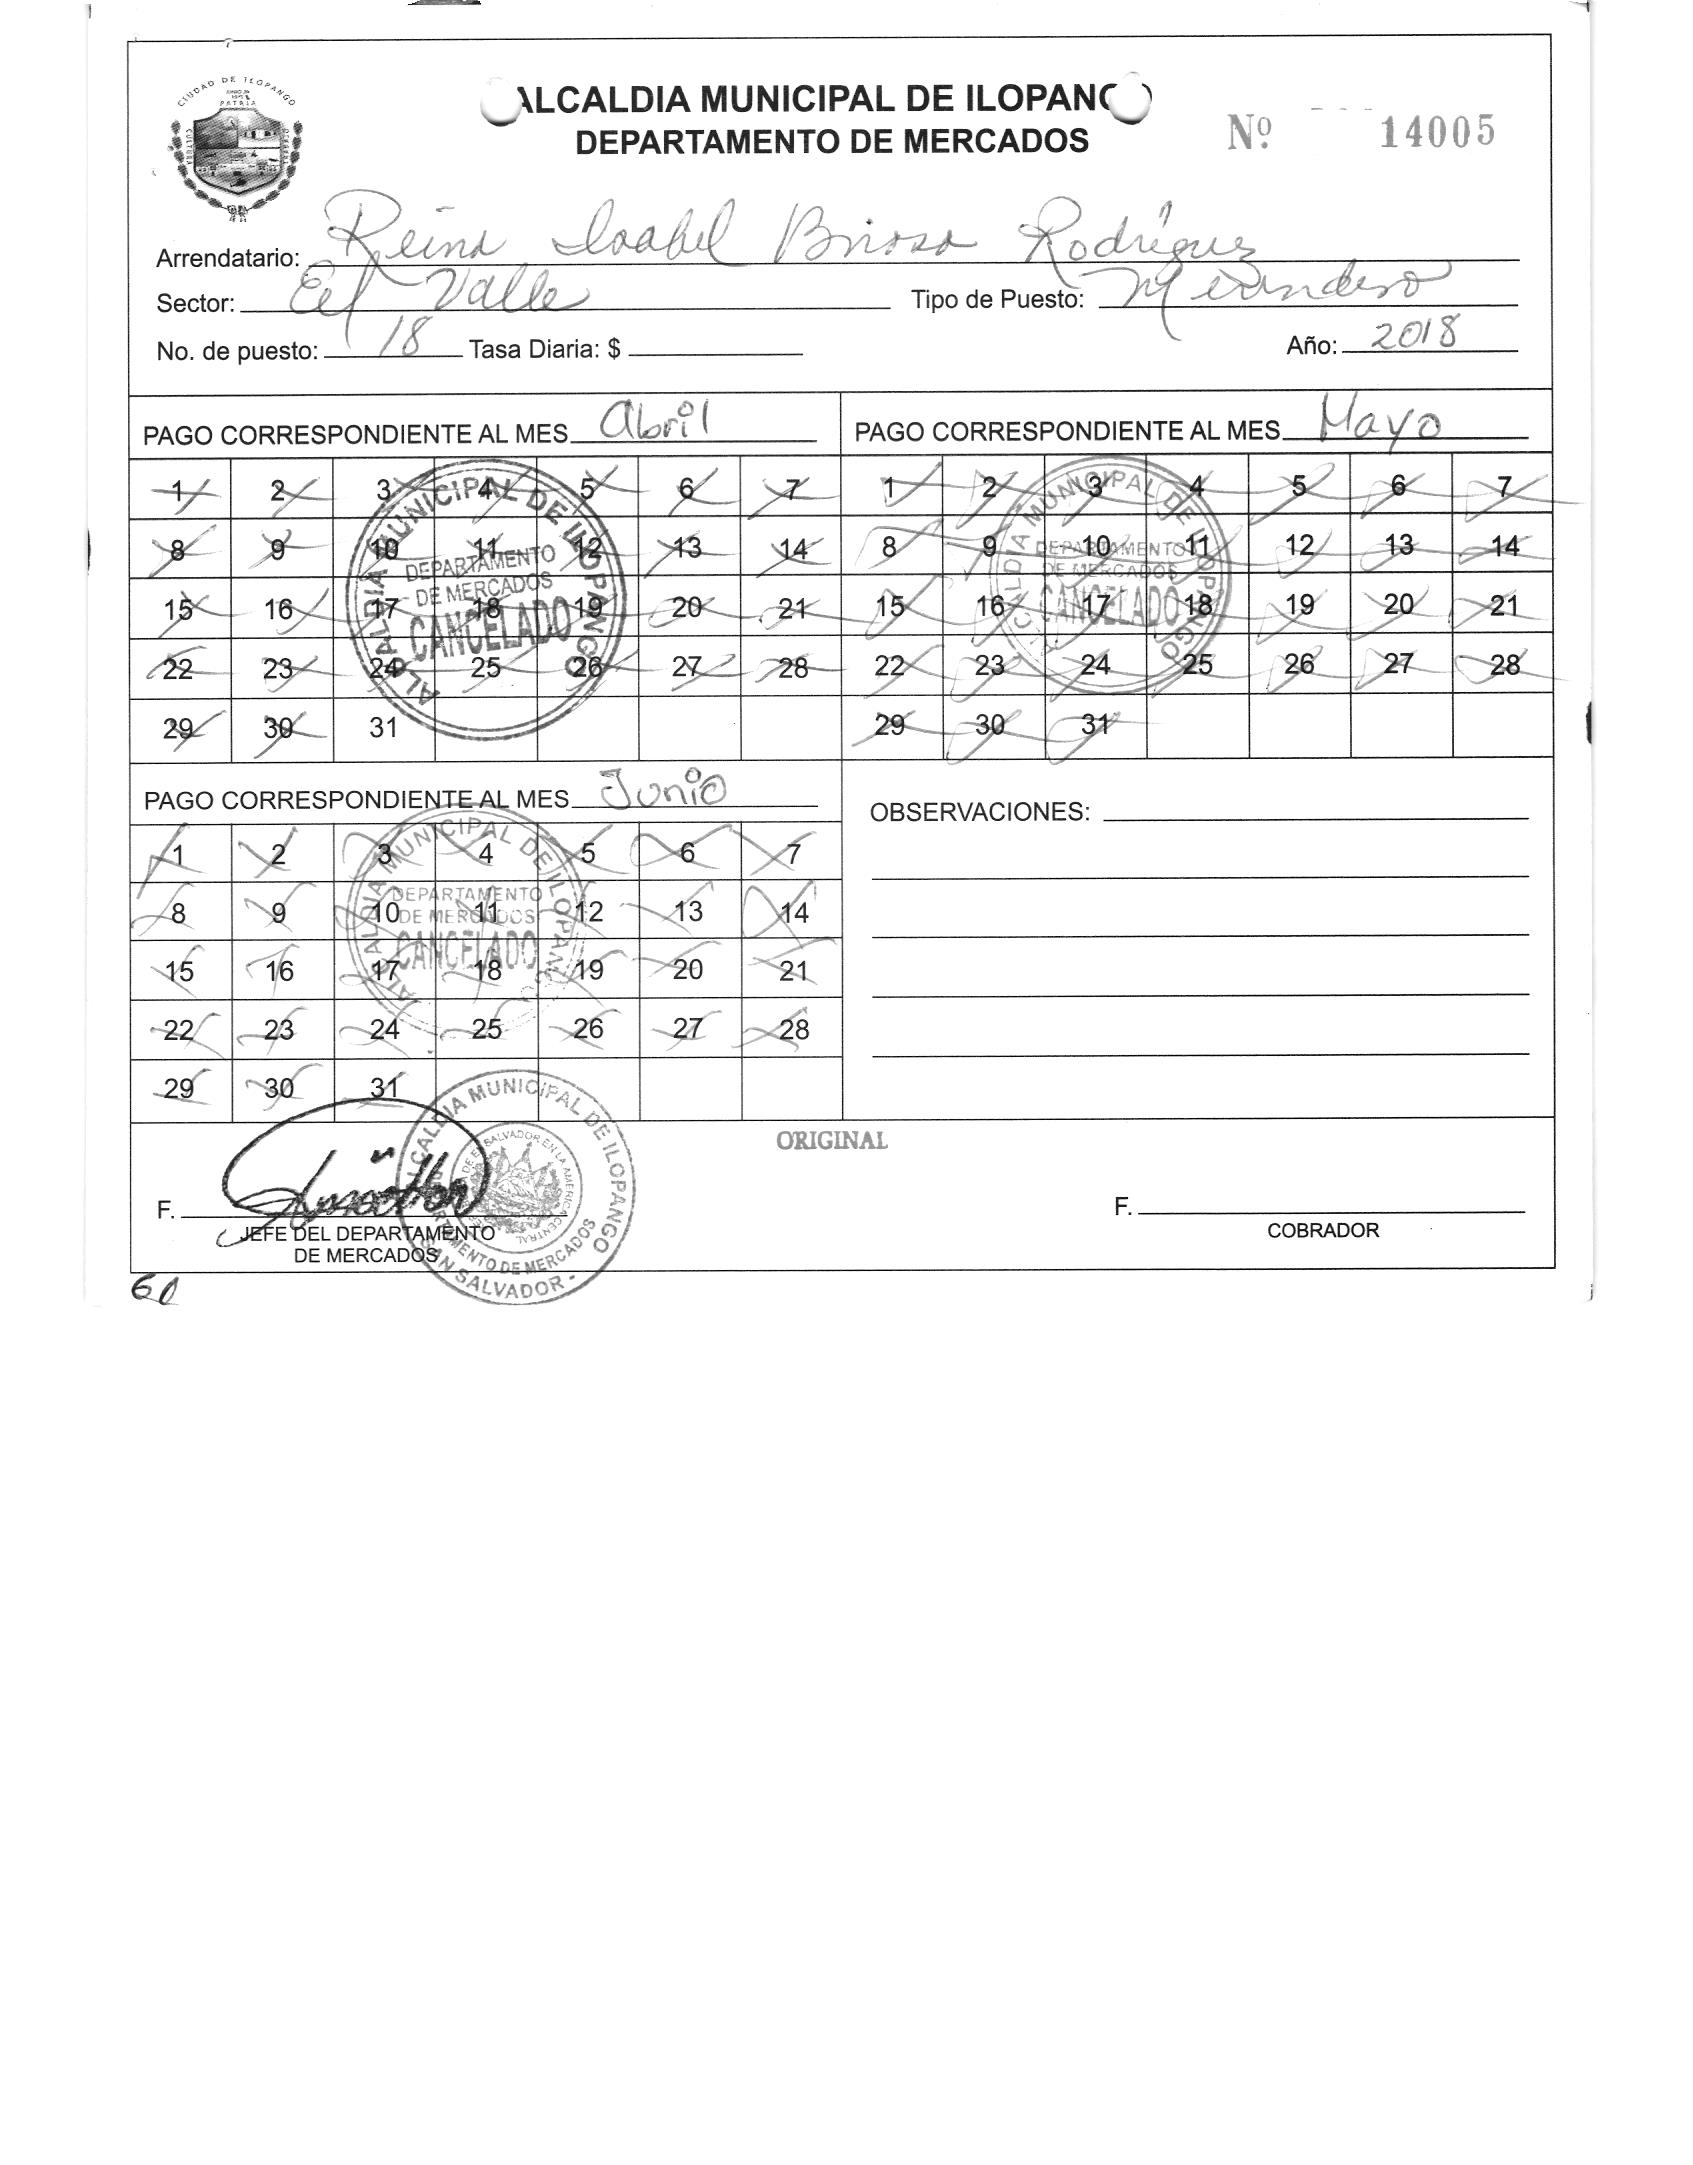 CIUDAD DE ILOPANGO
PATRIA
CULTURA
ALCALDIA MUNICIPAL DE ILOPANGO
DEPARTAMENTO DE MERCADOS
Nº 14005
Arrendatario: Reina Isabel Brioso Rodriguez
Sector: El Valle Tipo de Puesto: Merendero
No. de puesto: 18 Tasa Diaria: $ Año: 2018
PAGO CORRESPONDIENTE AL MES Abril
1 2 3 4 5 6 7
8 9 10 11 12 13 14
15 16 17 18 19 20 21
22 23 24 25 26 27 28
29 30 31
ALCALDIA MUNICIPAL DE ILOPANGO
DEPARTAMENTO
DE MERCADOS
CANCELADO
PAGO CORRESPONDIENTE AL MES Mayo
1 2 3 4 5 6 7
8 9 10 11 12 13 14
15 16 17 18 19 20 21
22 23 24 25 26 27 28
29 30 31
ALCALDIA MUNICIPAL DE ILOPANGO
DEPARTAMENTO
DE MERCADOS
CANCELADO
PAGO CORRESPONDIENTE AL MES Junio
1 2 3 4 5 6 7
8 9 10 11 12 13 14
15 16 17 18 19 20 21
22 23 24 25 26 27 28
29 30 31
ALCALDIA MUNICIPAL DE ILOPANGO
DEPARTAMENTO
DE MERCADOS
CANCELADO
OBSERVACIONES:
ORIGINAL
F.
JEFE DEL DEPARTAMENTO
DE MERCADOS
ALCALDIA MUNICIPAL DE ILOPANGO
DEPARTAMENTO DE MERCADOS
SAN SALVADOR
F.
COBRADOR